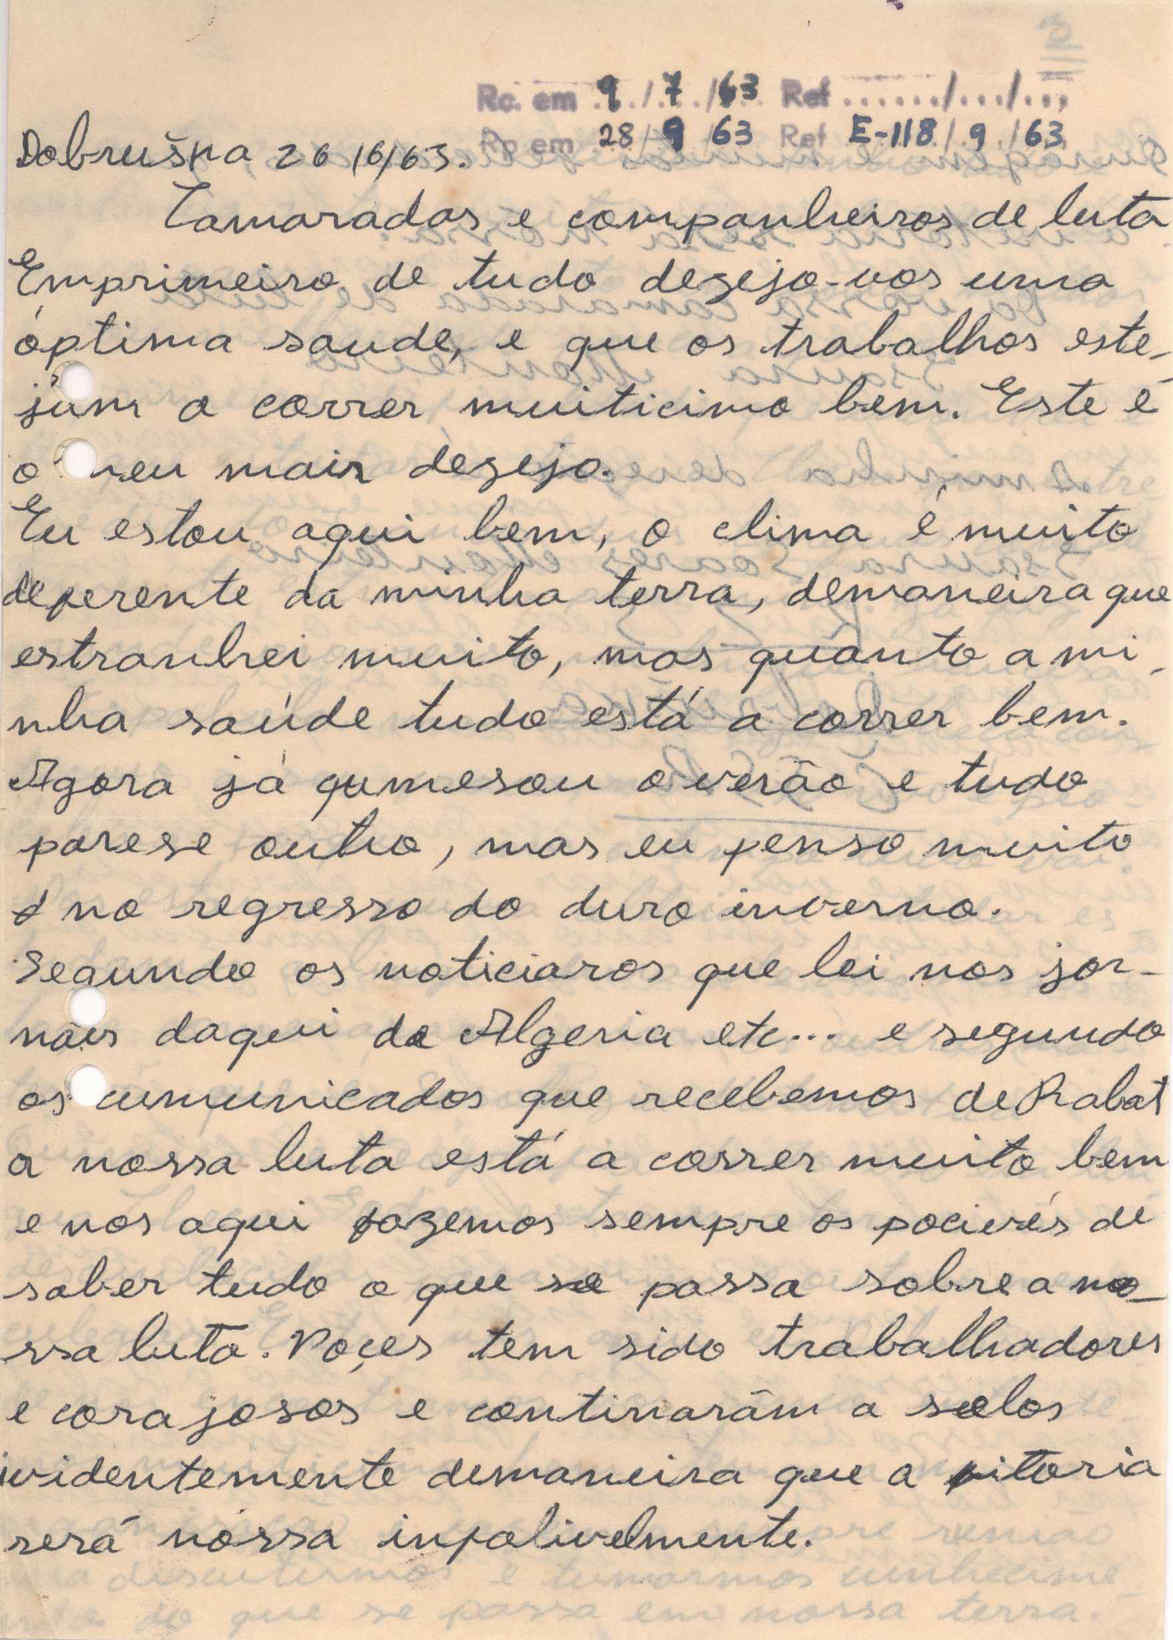 3
Rc. em 9 / 7 / 63 Ref ....../.../...
Rp em 28 / 9 / 63 Ref E-118 / 9 / 63
Dobruška 26/6/63.
Camaradas e companheiros de luta
Emprimeiro de tudo dezejo-vos uma
óptima saude, e que os trabalhos este-
jam a correr muiticimo bem. Este é
o meu mair dezejo.
Eu estou aqui bem, o clima é muito
deferente da minha terra, demaneira que
estranhei muito, mas quânto a mi-
nha saúde tudo está a correr bem.
Agora já qumesou o verão e tudo
parese outro, mas eu penso muito
no regresso do duro inverno.
Segundo os noticiaros que lei nos jor-
nais daqui da Algeria etc... e segundo
os cumunicados que recebemos de Rabat
a nossa luta está a correr muito bem
e nos aqui fazemos sempre os pocivés de
saber tudo o que se passa sobre a no-
ssa luta. Voçes tem sido trabalhadores
e corajosos e continarâm a selos
ividentemente demaneira que a vitoria
será nóssa infalivelmente.